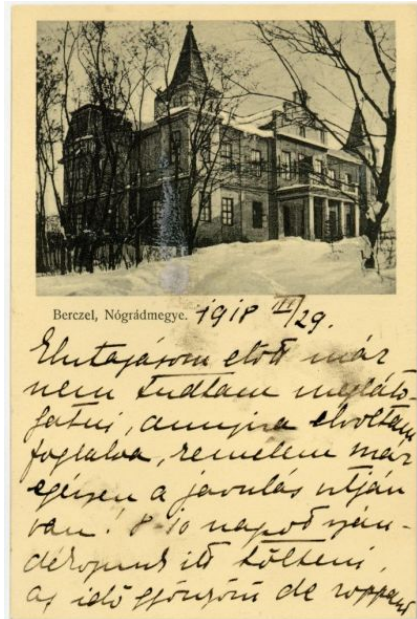 Berczel, Nógrádmegye. 1918 III/29.
Elutazásom előtt már
nem tudtam megláto-
gatni, annyira elvoltam
foglalva, remelem már
egészen a javulás utján
van! 8-10 napot szán-
dékozunk itt tölteni,
az idő gyönyörű de roppant